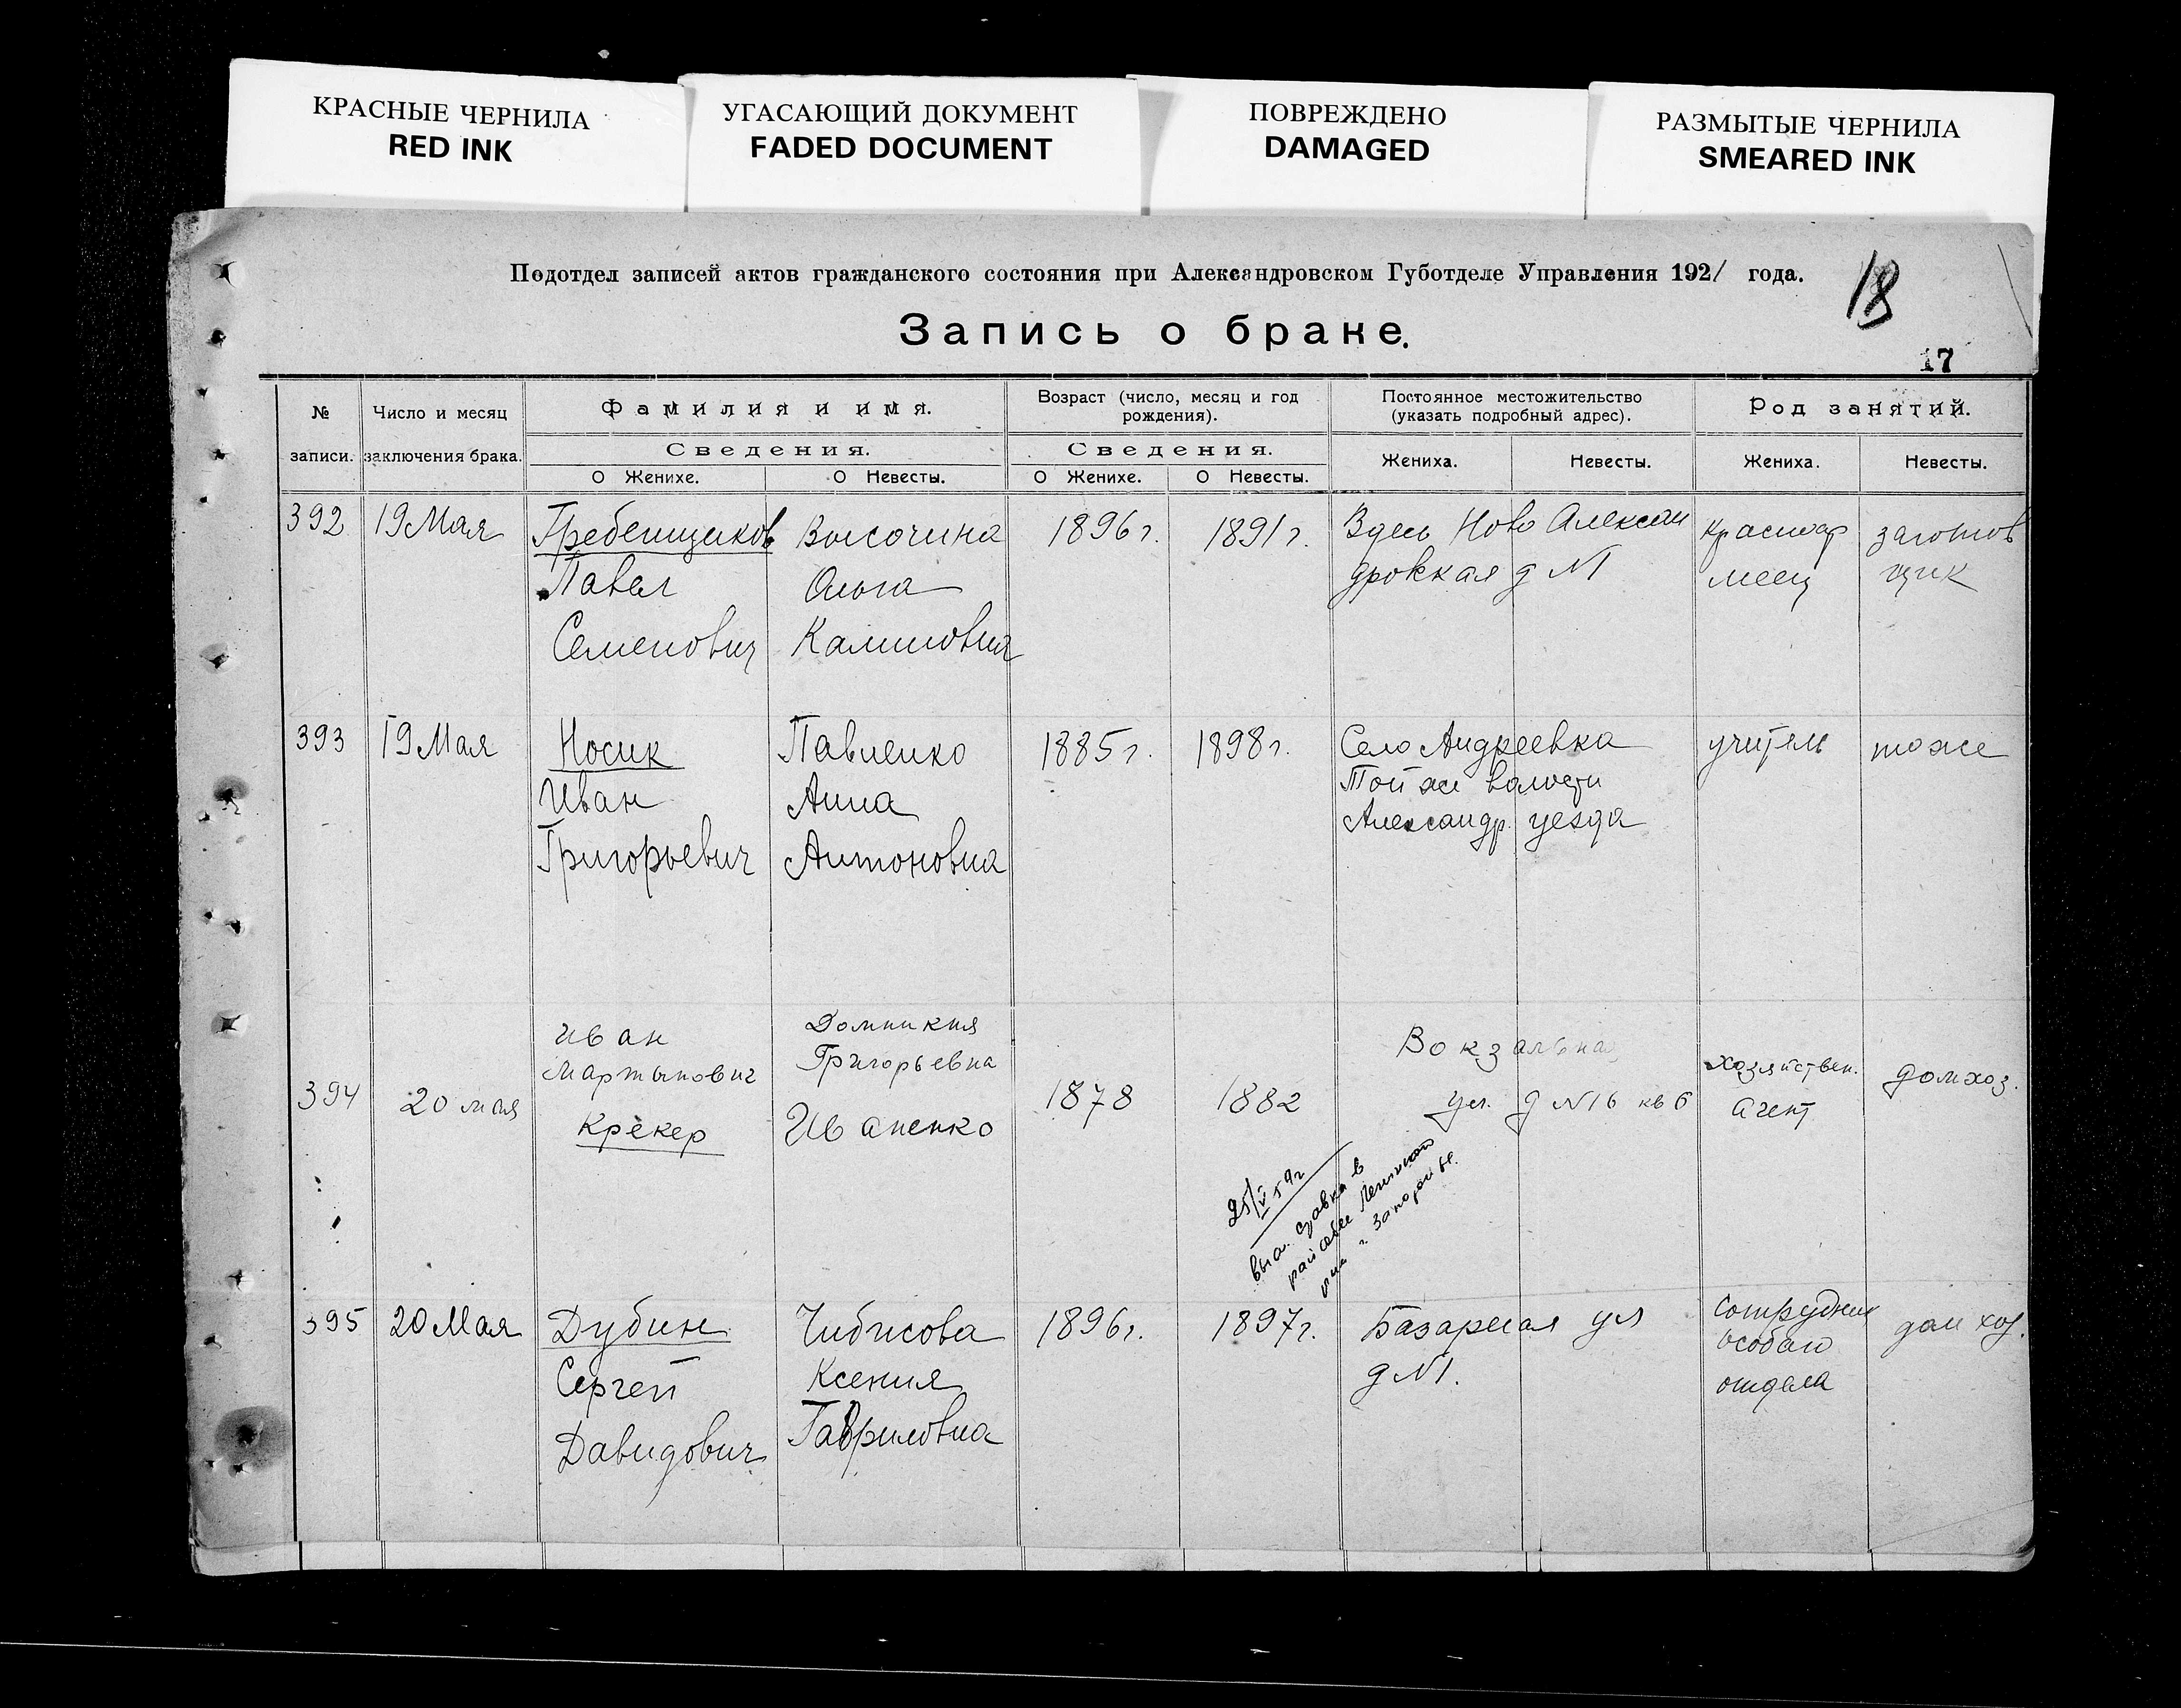 КРАСНЫЕ ЧЕРНИЛА
RED INK
УГАСАЮЩИЙ ДОКУМЕНТ
FADED DOCUMENT
ПОВРЕЖДЕНО
DAMAGED
РАЗМЫТЫЕ ЧЕРНИЛА
SMEARED INK
Подотдел записей актов гражданского состояния при Александровском Губотделе Управления 1921 года.
18
Запись о браке.
17
№ записи.
Число и месяц заключения брака.
Фамилия и имя.
Сведения.
О Женихе.
О Невесты.
Возраст (число, месяц и год рождения).
Сведения.
О Женихе.
О Невесты.
Постоянное местожительство (указать подробный адрес).
Жениха.
Невесты.
Род занятий.
Жениха.
Невесты.
392
19 Мая
Гребенщиков
Павел
Семенович
Высочина
Ольга
Калиновна
1896 г.
1891 г.
Здесь Ново Алексан
дровская д №1
красноар
меец
заготов
щик
393
19 Мая
Носик
Иван
Григорьевич
Павленко
Анна
Антоновна
1885 г.
1898 г.
Село Андреевка
Той же волости
Александр. уезда
учитель
тоже
394
20 мая
Иван
Мартынович
Крекер
Домникия
Григорьевна
Иваненко
1878
1882
Вокзальная
ул. д №16 кв 6
хозяйствен.
агент
домхоз.
25/V 59 г
в
Запорожье.
395
20 Мая
Дубин
Сергей
Давидович
Чибисова
Ксения
Гавриловна
1896 г.
1897 г.
Базарная ул
д №1.
Сотрудник
особого
отдела
дом хоз.